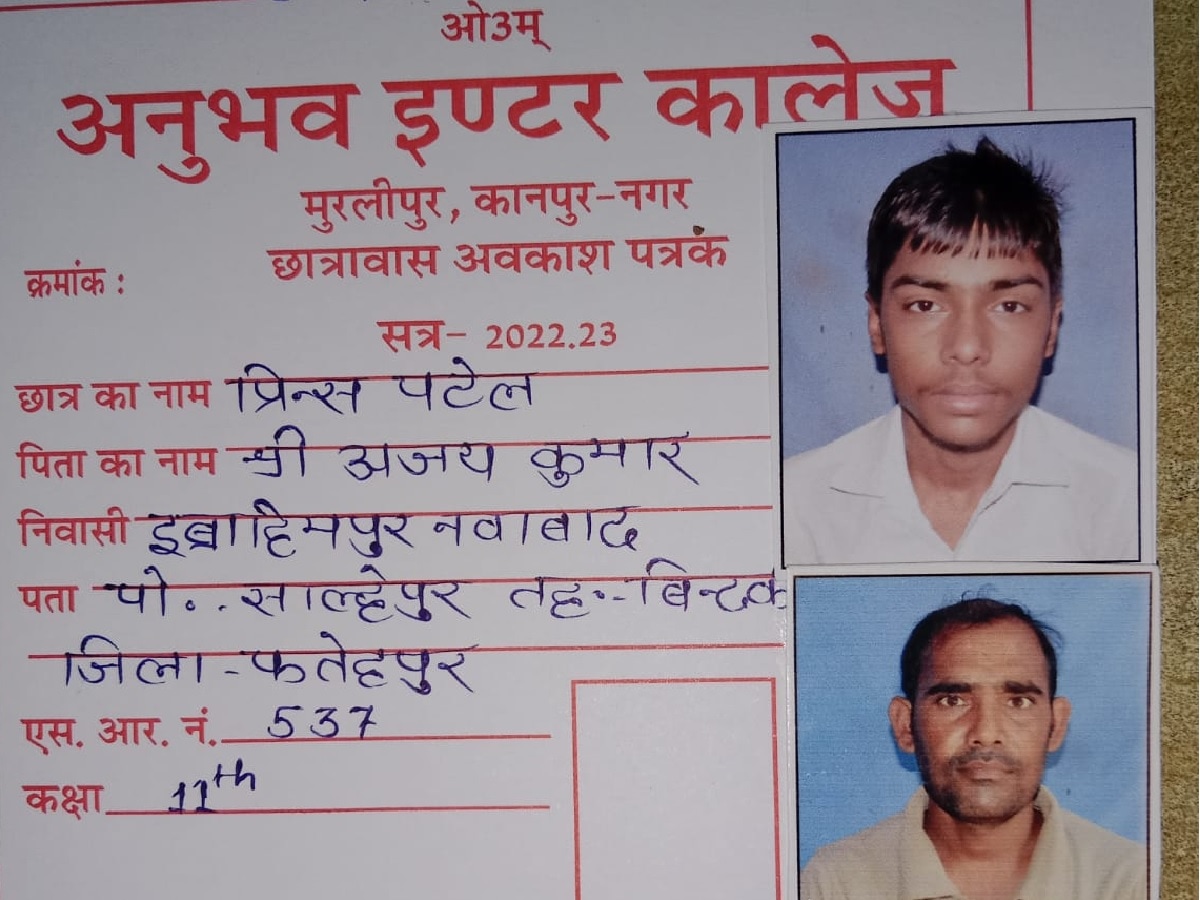 ओ३म्
अनुभव इण्टर कालेज
मुरलीपुर, कानपुर-नगर
छात्रावास अवकाश पत्रक
क्रमांक :
सत्र- 2022.23
छात्र का नाम प्रिन्स पटेल
पिता का नाम श्री अजय कुमार
निवासी इब्राहिमपुर नवाबाद
पता पो. . साल्हेपुर तह.- बिन्दक
जिला - फतेहपुर
एस. आर. नं. 537
कक्षा 11th